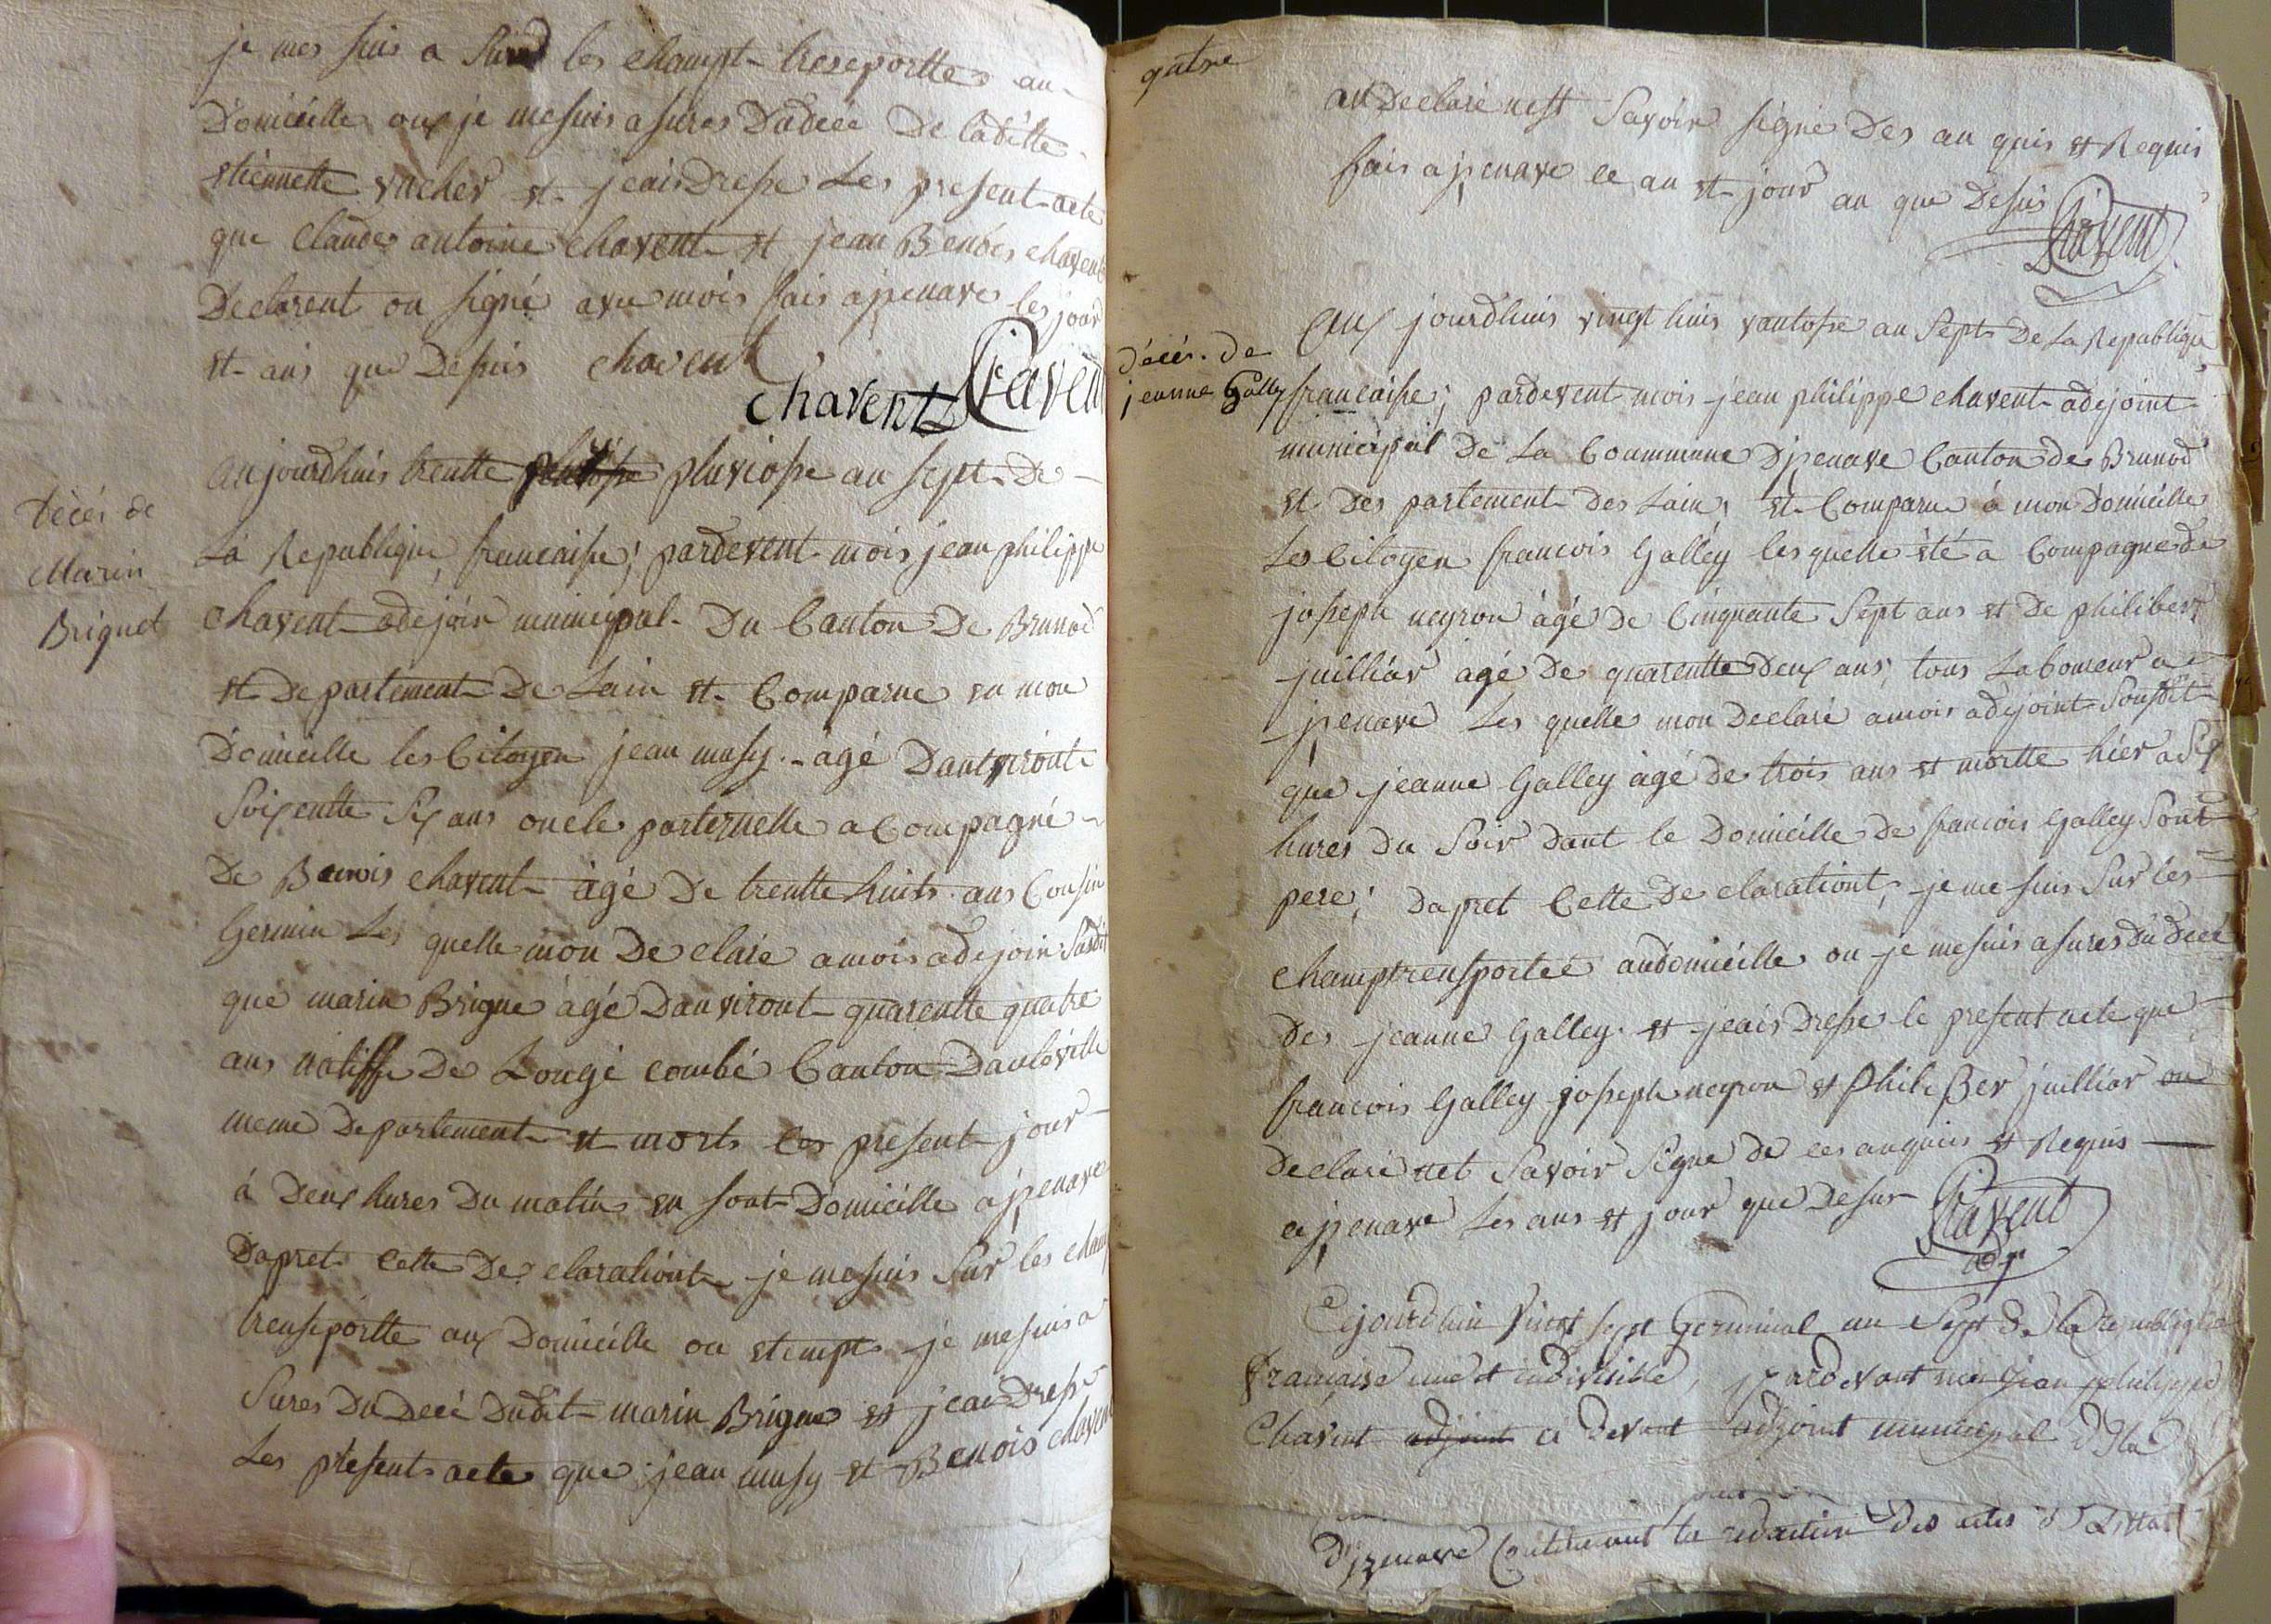 je mes suis a Surd les champt- treseportte au-
Domicille oux je mesuis asures Dudécé De laditte-
etiennette vacher et- jeais Dresse Les present-acte
que Claude antoine chavent- et jean Benbes chavent
Declarent on signé avue mois fais a jzenave les jour
et- ans que Desuis chavent
chavent Chavent
Décés de
Marin
Briguet
aujourdhuis trentte pluviosse an sept- De-
La Republique francaisse; pardevent- mois jean philippe
chavent- adejoin municypal- Du Canton De Brunod
et- Departement- De Lain et- Comparue en mon
Domicille les Citoyen jean musy- agé Dantviront-
Soixentte Six ans oncle parternelle a Compagné-
De Benois chavent- agé De trentte huits ans Cousin
Germin Les quelle mon De claré amois adejoin Susdit
que marin Brigue agé Danviront- quarentte quatre
ans natiffe De Longe combé Canton Dantoville
meme Departement- et morts les present- jour-
à Deux hures Du matin en sont- Domicille a jzenave
Dapret- Cette De clarationt- je mesuis Sur les champ
trenseportte aux Domicille ou etempt- je mesuis a
Sures Du Decé Dudit- marin Brigue et jeai Dresse
Les present- acte que jean musy et- Benois chavent
quatre
an Declaré nest Savoir signé Des au quis et Requis
fais a jzenave le an et- jour an que Desuis Chavent
Décés. de
jeanne Gally
aux jourdhuis vingt huis vantosse an Sept- De La Republique
francaisse; pardevent mois jean philippe chavent- adejoint-
municipal De La Coummune Djzenave Canton de Brunod
et Des partement- Des Lain; et- Comparue à mon Domicille
Les Citoyen francois Galley lesquelle été a Compagne de
josseph neyron àgé De Cinquante Sept ans et De philibert
juilliar agé De quarentte Deux ans, tous Laboureur a
jzenave Les quelle mon Declaré amois adejoint- Sousdit-
que jeanne Galley àgé de trois ans et mortte hier a Six
hures Du Soir Dant le Domicille De francois Galley Sont
pere; Dapret Cette De clarationt; je me suis Sur les-
champtrensportee audomicille ou je mesuis asures Du Decé
Des jeanne Galley. et jeais Dresse le present acte que-
francois Galley josseph neyron et PhiliBer juilliar on
Declaré net Savoir Signe De ces auquis et Requis-
a jzenave Les ans et jour que Desur- Chavent
adjt
Cejourdhui Vingt sept Germinal an Sept De la republique
française une et indivisible, pardevant moi jean philippe
Chavent adjoint ci devant adjoint municipal De la
D'jzenave Contenant la redaction des actes De L'Etat